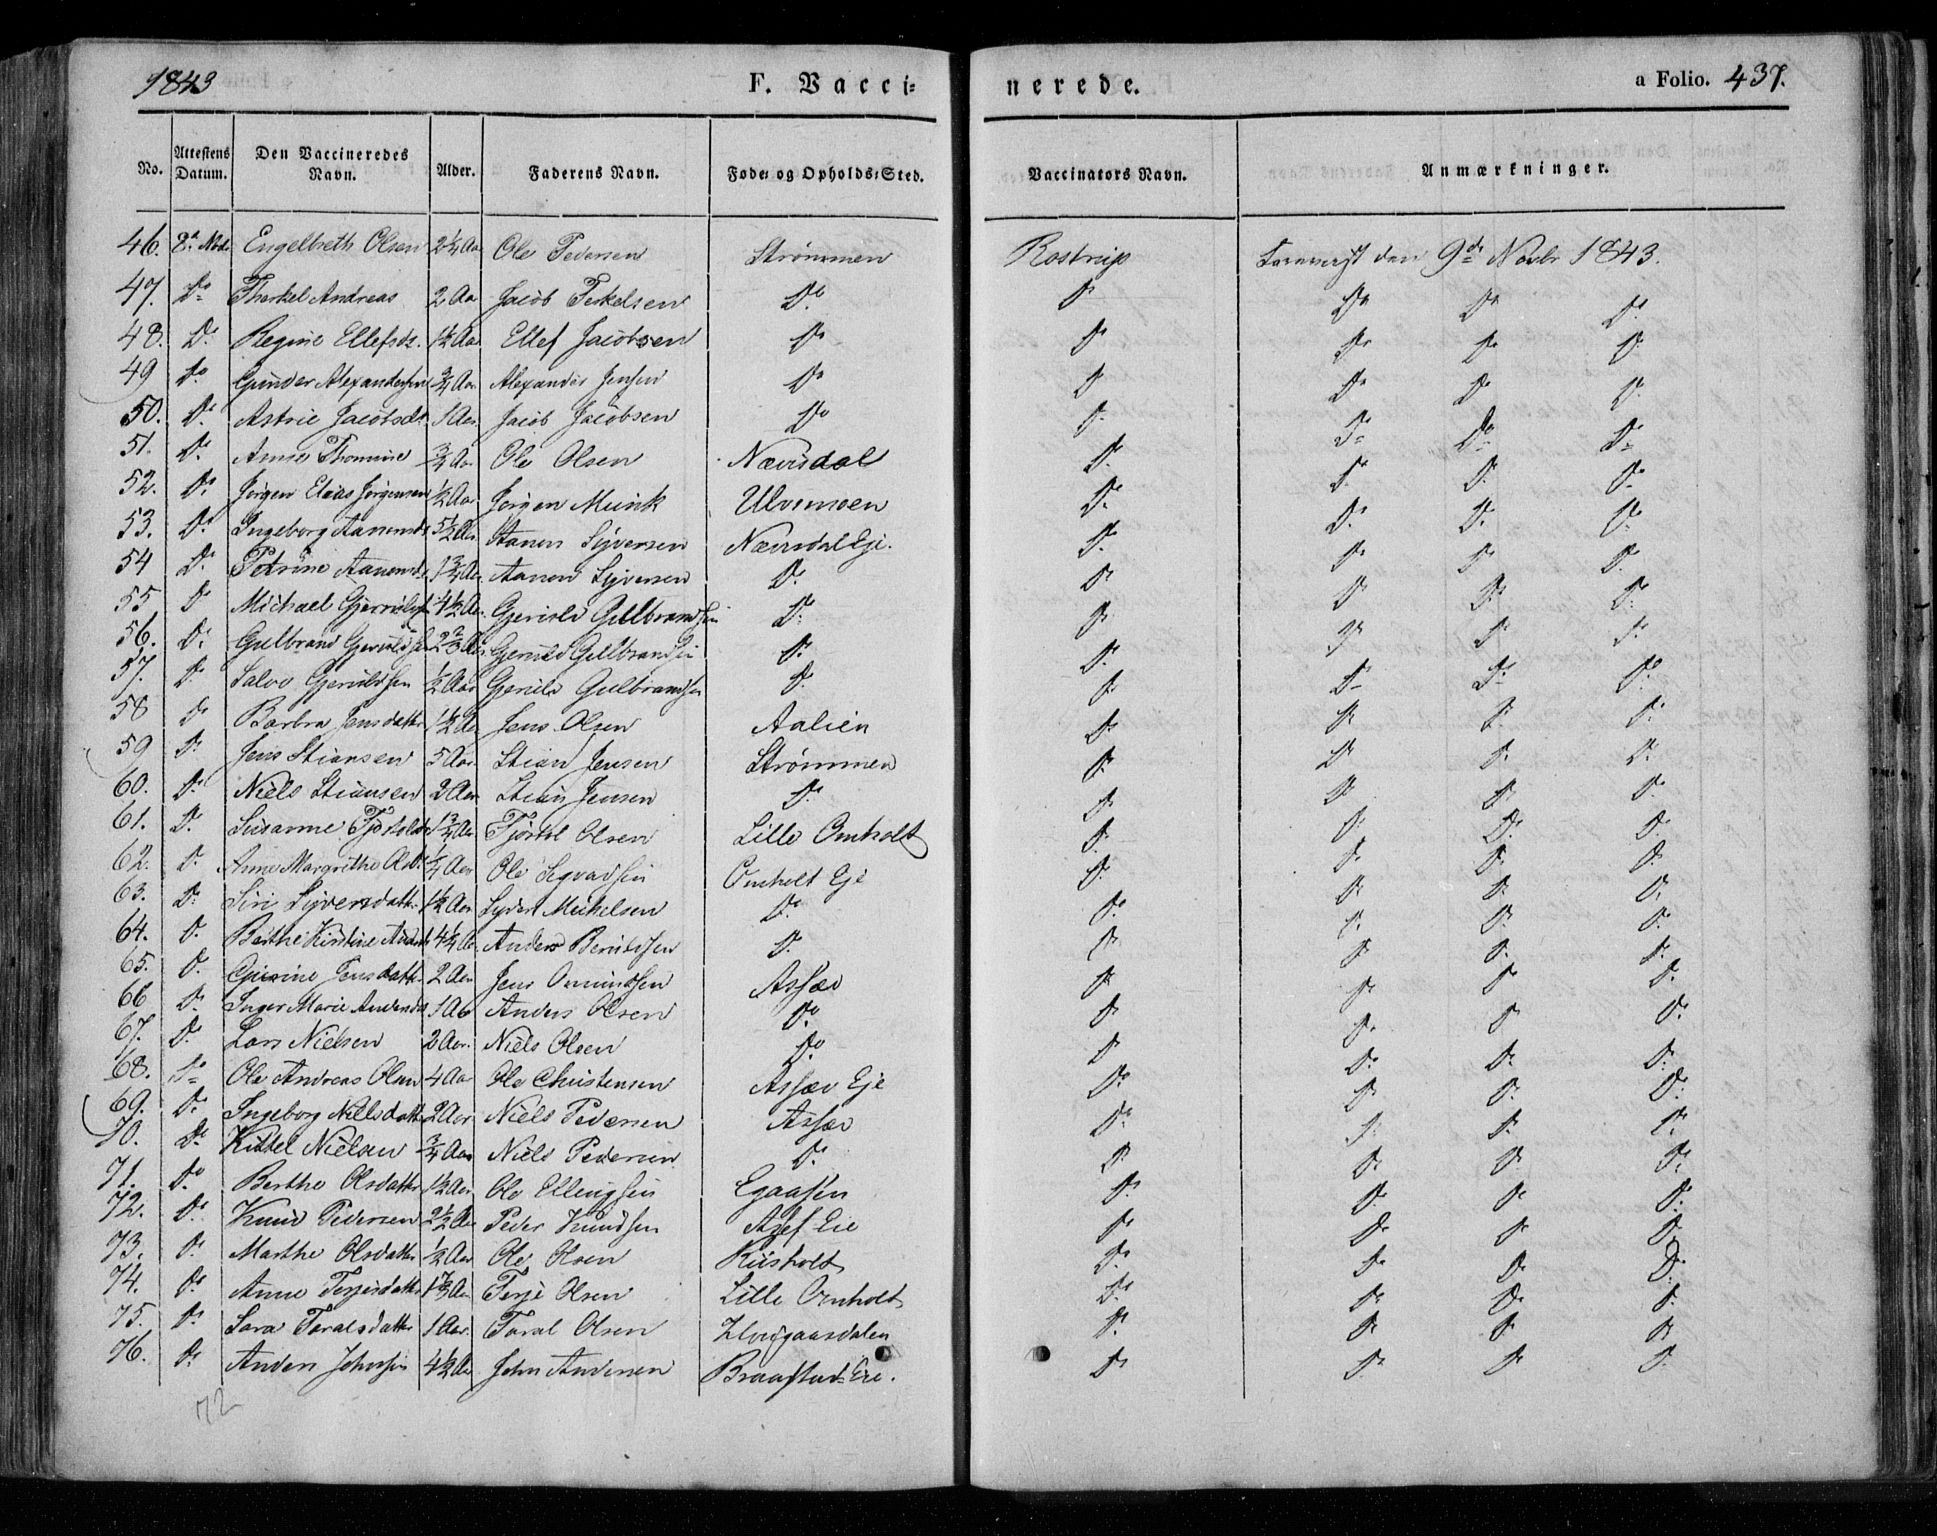 1843 F. Vacci= nerede. a Folio. 437.
No. Attestens Datum. Den Vaccineredes Navn. Alder. Faderens Navn. Føde= og Opholds=Sted. Vaccinators Navn. Anmærkninger.
46. 8de Novbr Engelbreth Olsen 2 1/4 Aar Ole Pedersen Strømmen Rostrup den 9de Novbr 1843.
47. Do Therkel Andreas 2 Aar Jacob Terkelsen Do Do Do Do Do
48. Do Regine Ellefsdr. 1 1/2 Aar Ellef Jacobsen Do Do Do Do Do
49 Do Gunder Alexandersen 3/4 Aar Alexander Jensen Do Do Do Do Do
50. Do Astrie Jacobsdr 1 Aar Jacob Jacobsen Do Do Do Do Do
51. Do Anne Thomine 3/4 Aar Ole Olsen Nævisdal Do Do Do Do
52. Do Jørgen Elias Jørgensen 1/2 Aar Jørgen Munk Ulvemoen Do Do Do Do
53. Do Ingeborg Aanensdr 5 1/2 Aar Aanen Syversen Nævisdal Eje. Do Do Do Do
54 Do Petrine Aanensdr 1 3/4 Aar Aanen Syversen Do Do Do Do Do
55 Do Michael Gjeruldsen 4 1/2 Aar Gjeruld Gulbrandsen Do Do Do Do Do
56. Do Gulbrand Gjeruldsen 2 2/3 Aar Gjeruld Gulbrandsen Do Do Do Do Do
57. Do Salve Gjeruldsen 1/2 Aar Gjeruld Gulbrandsen Do Do Do Do Do
58 Do Barbra Jensdatter 1 1/2 Aar Jens Olsen Aalien Do Do Do Do
59 Do Jens Stiansen 5 Aar Stian Jensen Strømmen Do Do Do Do
60. Do Niels Stiansen 2 Aar Stian Jensen Do Do Do Do Do
61. Do Susanne 1 3/4 Aar Olsen Lille Omholt Do Do Do Do
62. Do Anne Margrethe Olsdr 1/4 Aar Ole Sigvardsen Omholt Eje Do Do Do Do
63. Do Siri Syversdatter 1 1/2 Aar Syvert Mickelsen Do Do Do Do Do
64. Do Berthe Kirstine 4 1/2 Aar Anders Beruldsen Do Do Do Do Do
65. Do Gjurine Jensdatter 2 Aar Jens Omundsen Assæv Do Do Do Do
66 Do Inger Marie Andersdr 1 Aar Anders Olsen Do Do Do Do Do
67. Do Lars Nielsen 2 Aar. Niels Olsen Do Do Do Do Do
68. Do Ole Andreas Olsen 4 Aar Ole Christensen Assæv Eje Do Do Do Do
69. Do Ingeborg Nielsdatter 2 Aar Niels Pedersen Assæv Do Do Do Do
70. Do Kittel Nielsen 3/4 Aar Niels Pedersen Do Do Do Do Do
71. Do Berthe Olsdatter 1 1/2 Aar Ole Ellingsen Egaasen Do Do Do Do
72. Do Knud Pedersen 2 1/2 Aar Peder Knudsen Eie Do Do Do Do
73. Do Marthe Olsdatter 1/2 Aar Ole Olsen Riisholt Do Do Do Do
74. Do Anne Terjesdatter Aar Terje Olsen Lille Omholt Do Do Do Do
75. Do Sara Taralsdatter 1 Aar Taral Olsen Do Do Do Do
76. Do Anders Johnsen 4 1/2 Aar John Andersen Braastad=Eie. Do Do Do Do
72